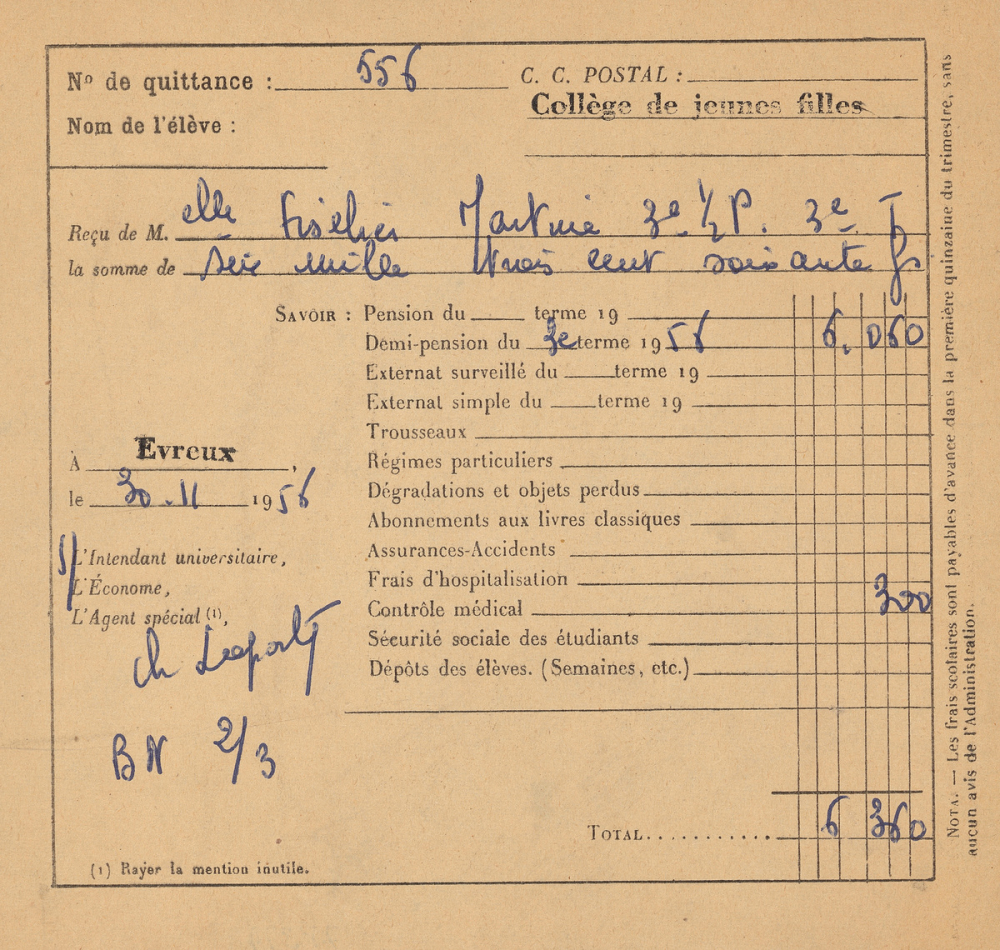 Nº de quittance : 556
C. C. POSTAL :
Collège de jeunes filles
Nom de l'élève :
Reçu de M. elle Martine 3e ½ P. 3e T
la somme de six mille trois cent soixante fs
SAVOIR : Pension du terme 19
Demi-pension du 3e terme 1956 6.060
Externat surveillé du terme 19
Externat simple du terme 19
Trousseaux
Régimes particuliers
Dégradations et objets perdus
Abonnements aux livres classiques
Assurances-Accidents
Frais d'hospitalisation
Contrôle médical 300
Sécurité sociale des étudiants
Dépôts des élèves. (Semaines, etc.)
À Evreux,
le 30.11 1956
L'Intendant universitaire,
L'Économe,
L'Agent spécial (1),
BN 2/3
TOTAL........... 6 360
(1) Rayer la mention inutile.
NOTA. — Les frais scolaires sont payables d'avance dans la première quinzaine du trimestre, sans
aucun avis de l'Administration.